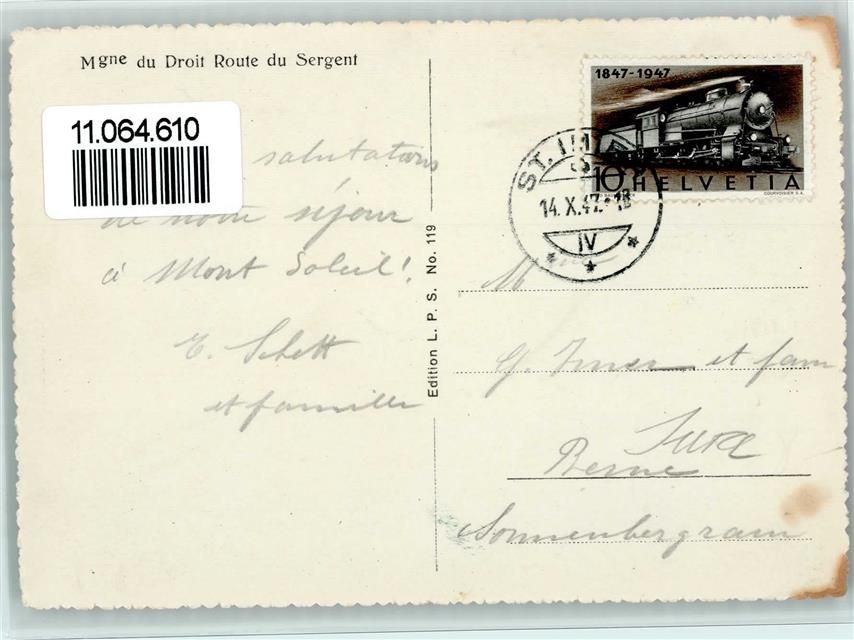 Mgne du Droit Route du Sergent
11.064.610
salutations
de notre séjour
à Mont Soleil!
E. Schett
et famille
Edition L. P. S. No. 119
1847-1947
10 HELVETIA
COURVOISIER S.A.
ST. IM
14. X. 47.-18
IV
M
et fam
Berne